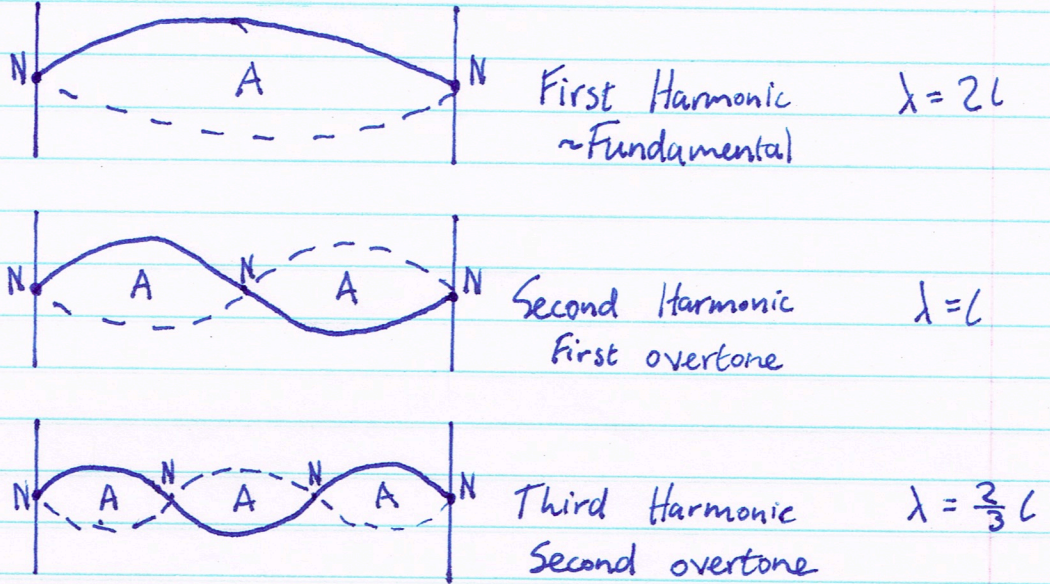 N A N First Harmonic λ = 2l
~Fundamental
N A N A N Second Harmonic λ = l
First overtone
N A N A N A N Third Harmonic λ = 2/3 l
Second overtone